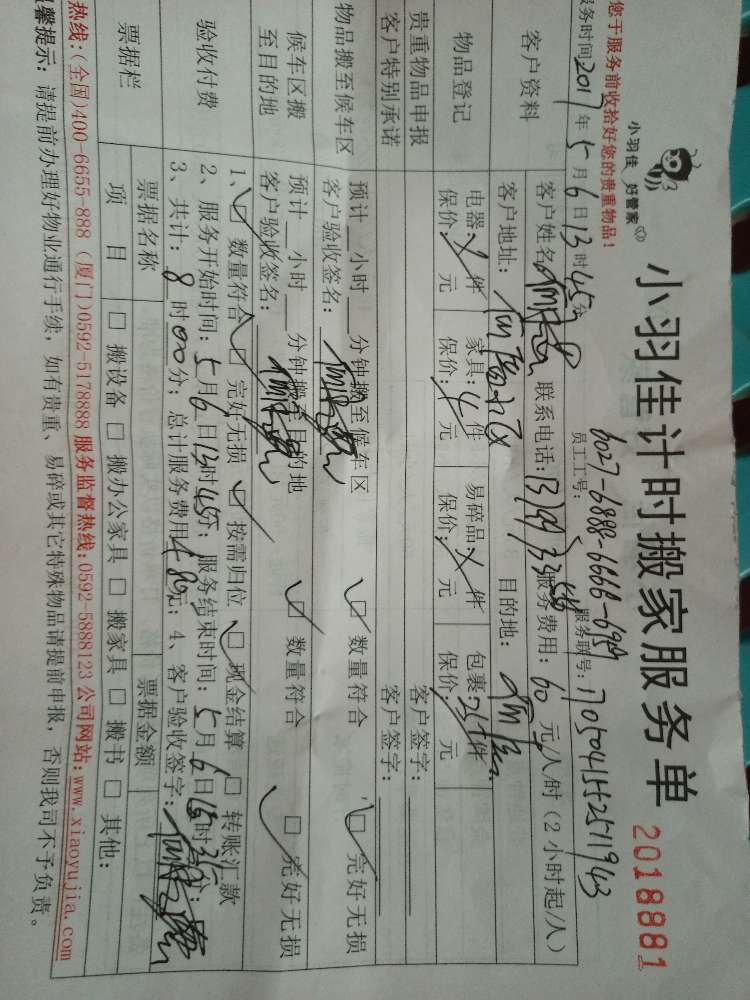 小羽佳 好管家
小羽佳计时搬家服务单
2018881
您于服务前收拾好您的贵重物品!
员工工号: 6027-6888-6666-6959 服务联号: 1705041552511943
服务时间2017年5月6日13时45分
客户资料
客户姓名: 联系电话: 服务费用: 60元/人/时(2小时起/人)
客户地址: 目的地:
物品登记
电器: 件 家具: 4件 易碎品: 件 包裹: 件
保价: 元 保价: 元 保价: 元 保价: 元
贵重物品申报 客户签字:
客户特别承诺 客户签字:
物品搬至候车区
预计__小时__分钟搬至候车区 □ 数量符合 □ 完好无损
客户验收签名:
候车区搬至目的地
预计__小时__分钟搬至目的地 □ 数量符合 □ 完好无损
客户验收签名:
验收付费
1、□ 数量符合 □ 完好无损 □ 按需归位 □ 现金结算 □ 转账汇款
2、服务开始时间: 5月6日13时45分; 服务结束时间: 5月6日
3、共计: 8时00分; 总计服务费用480元; 4、客户验收签字:
票据栏
票据名称 票据金额
项 目 □ 搬设备 □ 搬办公家具 □ 搬家具 □ 搬书 □ 其他:
热线:(全国)400-6655-888 (厦门)0592-5178888 服务监督热线:0592-5888123 公司网站:www.xiaoyujia.com
温馨提示: 请提前办理好物业通行手续, 如有贵重、易碎或其它特殊物品请提前申报, 否则我司不予负责。